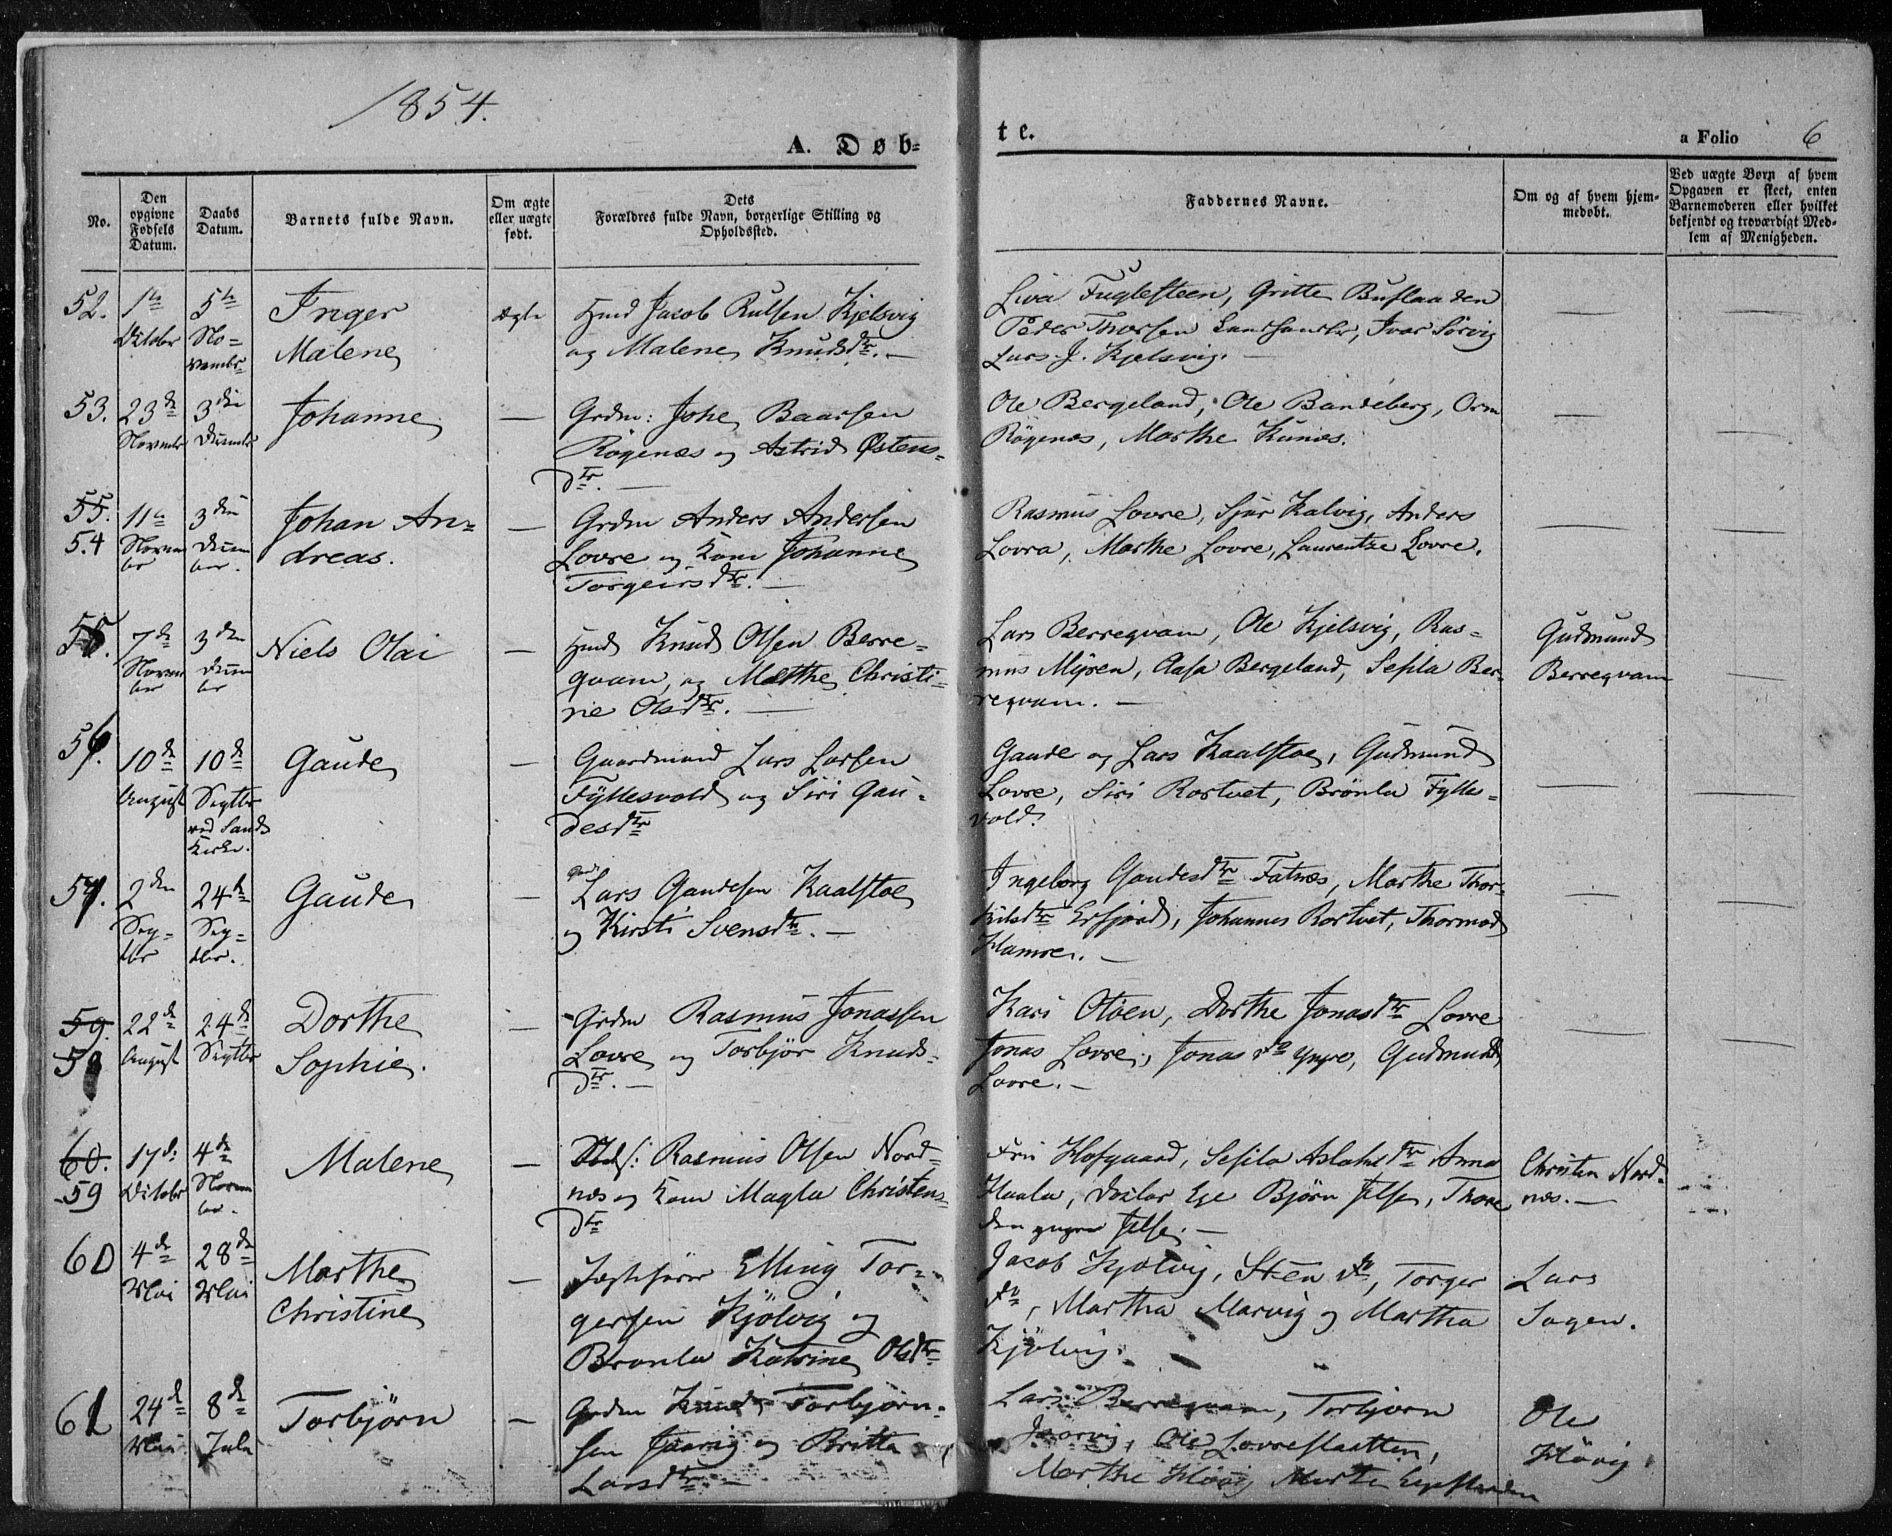 1854.
A. Døb=
te.
a Folio 6
No.
Den opgivne Fødsels Datum.
Daabs Datum.
Barnets fulde Navn.
Om ægte eller uægte født.
Dets
Forældres fulde Navn, borgerlige Stilling og
Opholdssted.
Faddernes Navne.
Om og af hvem hjem-
medøbt.
Ved uægte Børn af hvem
Opgaven er skeet, enten
Barnemoderen eller hvilket
bekjendt og troværdigt Med-
lem af Menigheden.
52. 1ste Oktobr 5te No=vembr Inger Malene ægte
Hmd Jacob Rulsen Kjelsvig
og Malene Knudsdtr. —
Liva Fuglesteen, Gritte Buflaaden
Peder Thorsen, Ivar Sørvig
Lars J. Kjelsvig. —
53. 23de Novembr 3die Decembr Johanne —
Grdm: Johe Baarsen
Røgenæs og Astrid Østens-
dtr. —
Ole Bergeland, Ole Bandeberg, Orm
Røgenæs, Marthe Hunæs.
55. 54 11te Novembr 3die Decembr. Johan An=dreas. —
Grdm Anders Andersen
Lovre og Kone Johanne
Torgeirsdtr. —
Rasmus Lovre, Sjur Kalvig, Anders
Lovra, Marthe Lovre, Laurentze Lovre.
55. 7de Novembr 3die Decembr Niels Olai —
Hmd Knud Olsen Berre=
qvam, og Marthe Christi-
ne Olsdtr. —
Lars Berreqvam, Ole Kjelsvig, Ras-
mus Mÿren, Aasa Bergeland, Sesila Ber-
reqvam. —
Gudmund
Berreqvam
56. 10de August 10de Septbr ved Sands Kirke. Gaude —
Gaardmand Lars Larsen
Fyllesvold og Siri Gau-
desdtr
Gaude og Lars Kaalstoe, Gudmund
Lovre, Siri Rortvet, Brønla Fylles=
vold.
57. 2den Sep-tbr 24de Sep-tbr. Gaude —
Lars Gaudesen Kaalstoe
og Kirsti Svensdtr. —
Ingeborg Gaudesdtr Fatnæs, Marthe Thor-
kilsdtr Erfjord, Johannes Rortvet, Thormod
Hamre. —
59. 58 22de August 24de Septbr Dorthe Sophie. —
Grdm Rasmus Jonassen
Lovre og Torbjør Knuds-
dtr. —
Kari Otøen, Dorthe Jonasdtr Lovre
Jonas Lovre, Jonas do yngre, Gudmund
Lovre. —
60. 59 17de Oktobr 4de Novembr. Malene —
Rasmus Olsen Nord=
næs og Kone Magla Christens-
dtr
Hofgaard, Sesila Aslaksdtr Anna
Haala, Ege Bjørn Jelse, Thore
den yngre Jelse. —
Christen Nord-
næs. —
60 4de Mai 28de Mai Marthe Christine —
Elling Tor-
gersen Kjölvig og
Bronla Katrine Olsdtr
Jacob Kjølvig, Sten do, Torger
do, Martha Marvig og Martha
Kjölvig.
Lars
Sagen.
61 24de Mai 8de Julii Torbjørn —
Grdm Knud Torbjørn-
sen Jaarvig og Britta
Larsdtr. —
Lars Berreqvam, Torbjorn
Jaarvig, Ole Lovreslaatten,
Marthe Høvig
Ole
Høvig